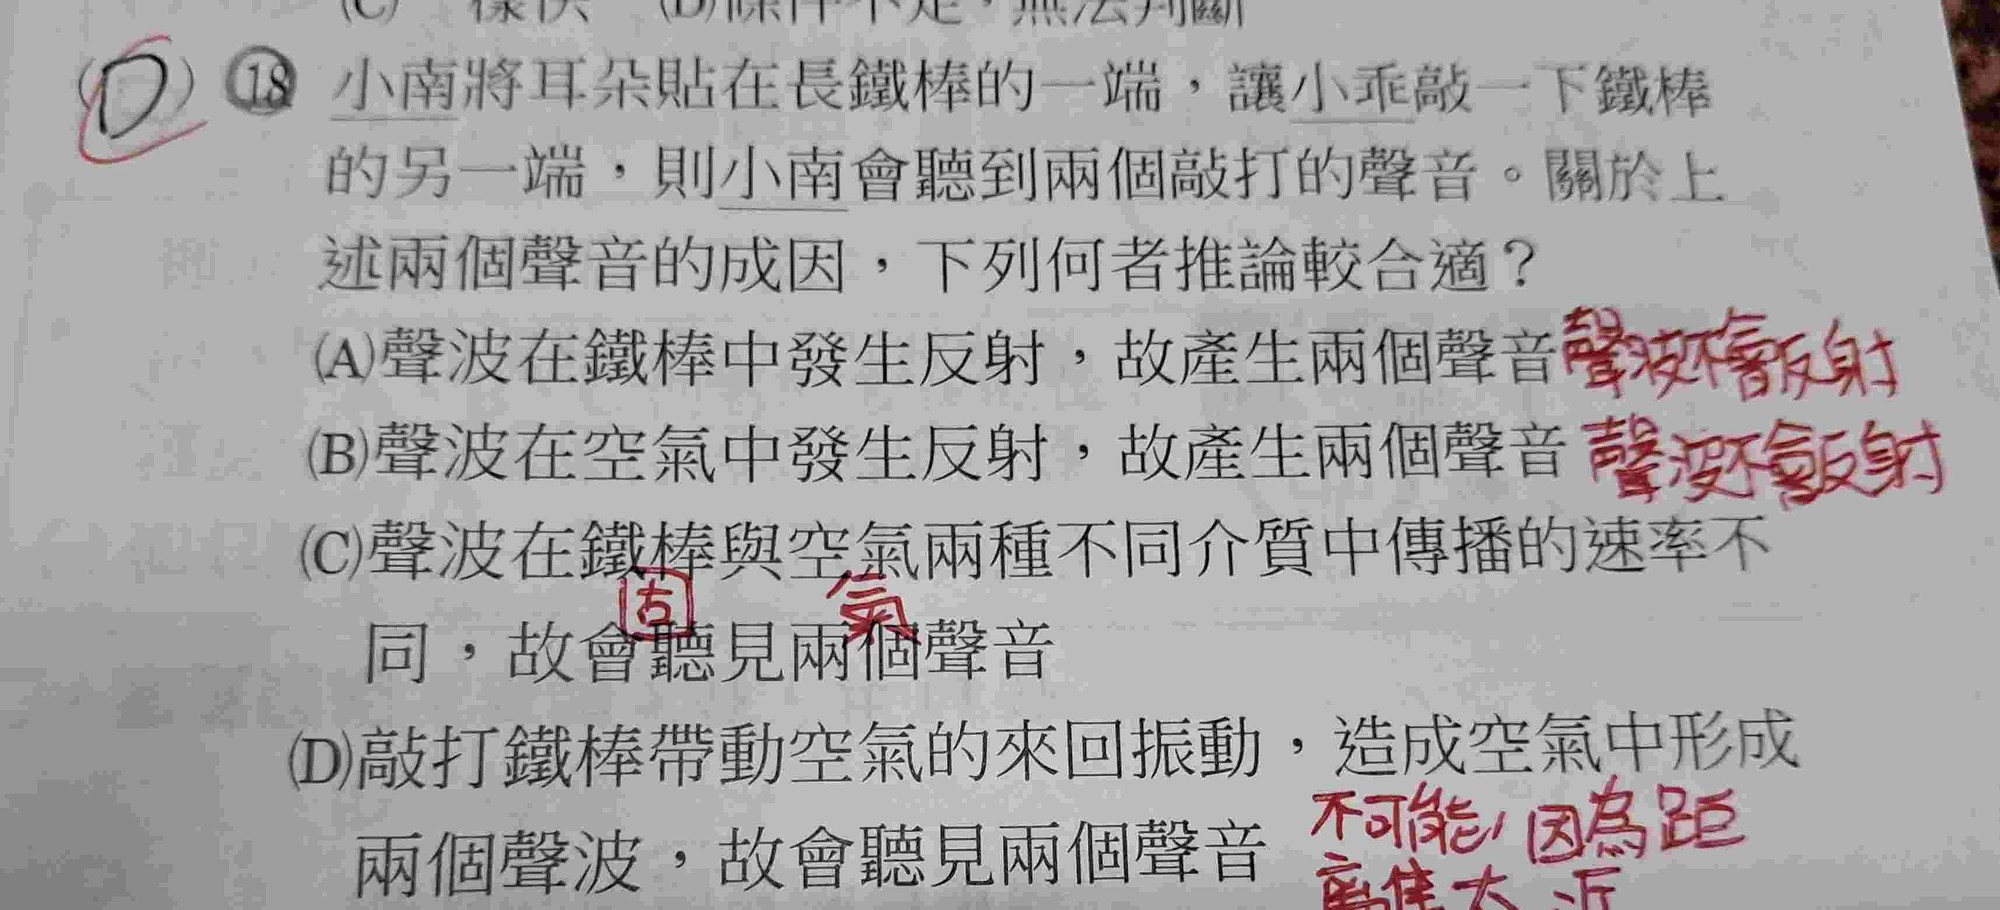 (C)一樣快 (D)條件不足，無法判斷
(D) ⑱ 小南將耳朵貼在長鐵棒的一端，讓小乖敲一下鐵棒
的另一端，則小南會聽到兩個敲打的聲音。關於上
述兩個聲音的成因，下列何者推論較合適？
(A)聲波在鐵棒中發生反射，故產生兩個聲音 聲波不會反射
(B)聲波在空氣中發生反射，故產生兩個聲音 聲波不會反射
(C)聲波在鐵棒與空氣兩種不同介質中傳播的速率不
固 氣
同，故會聽見兩個聲音
(D)敲打鐵棒帶動空氣的來回振動，造成空氣中形成
不可能，因為距
兩個聲波，故會聽見兩個聲音
離太近